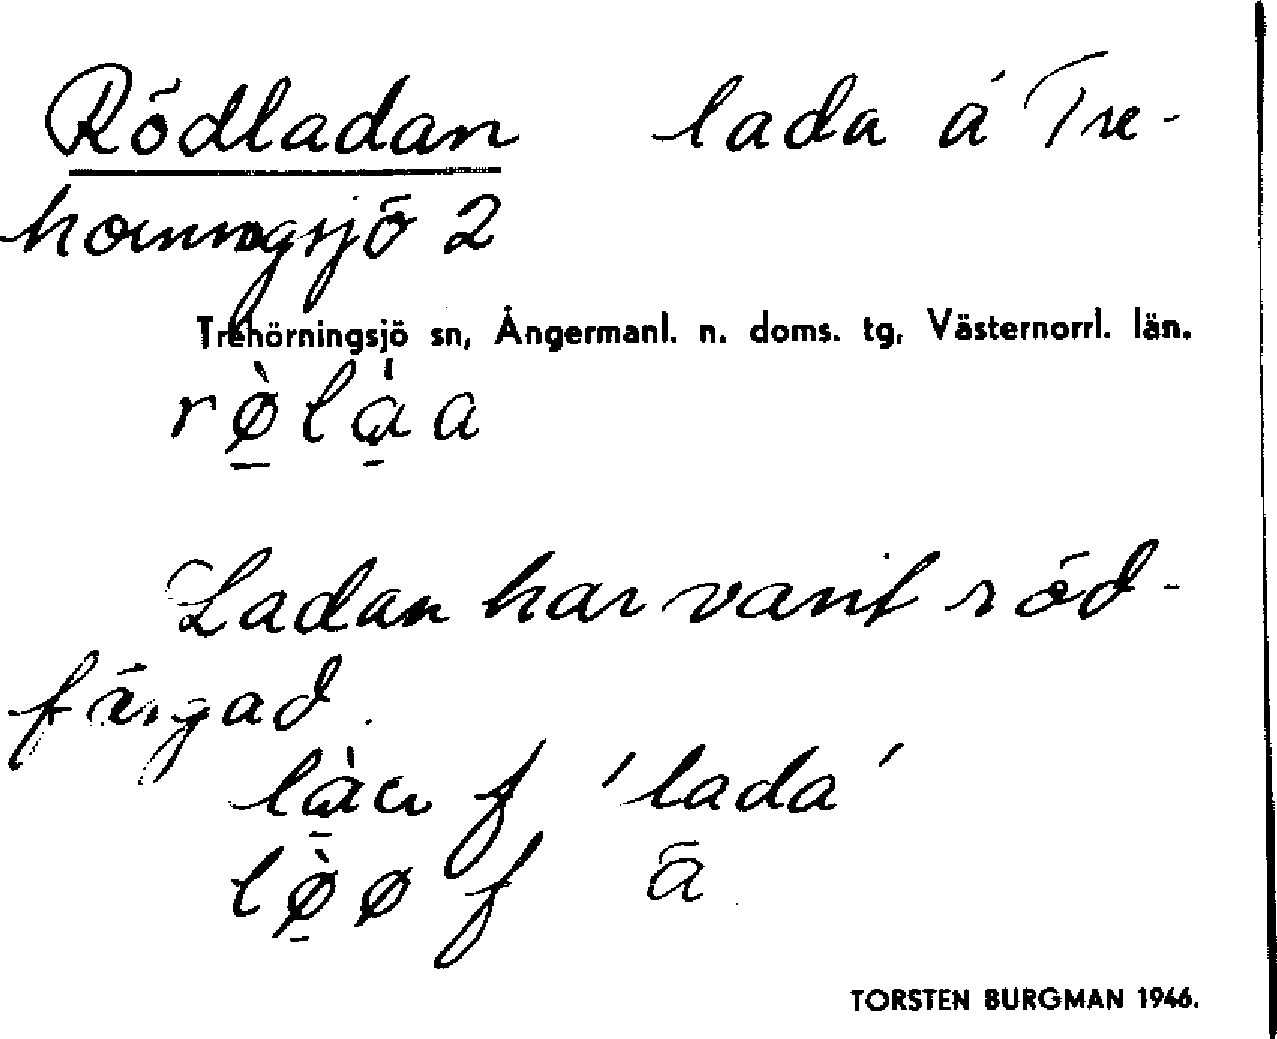 Rödladan lada å Tre-
hörningsjö 2
Trehörningsjö sn, Ångermanl. n. doms. tg, Västernorrl. län.
rø̠̀la̠̍a
Ladan har varit röd-
färgad.
la̠̍a f 'lada'
lø̠̀ø f ā
TORSTEN BURGMAN 1946.